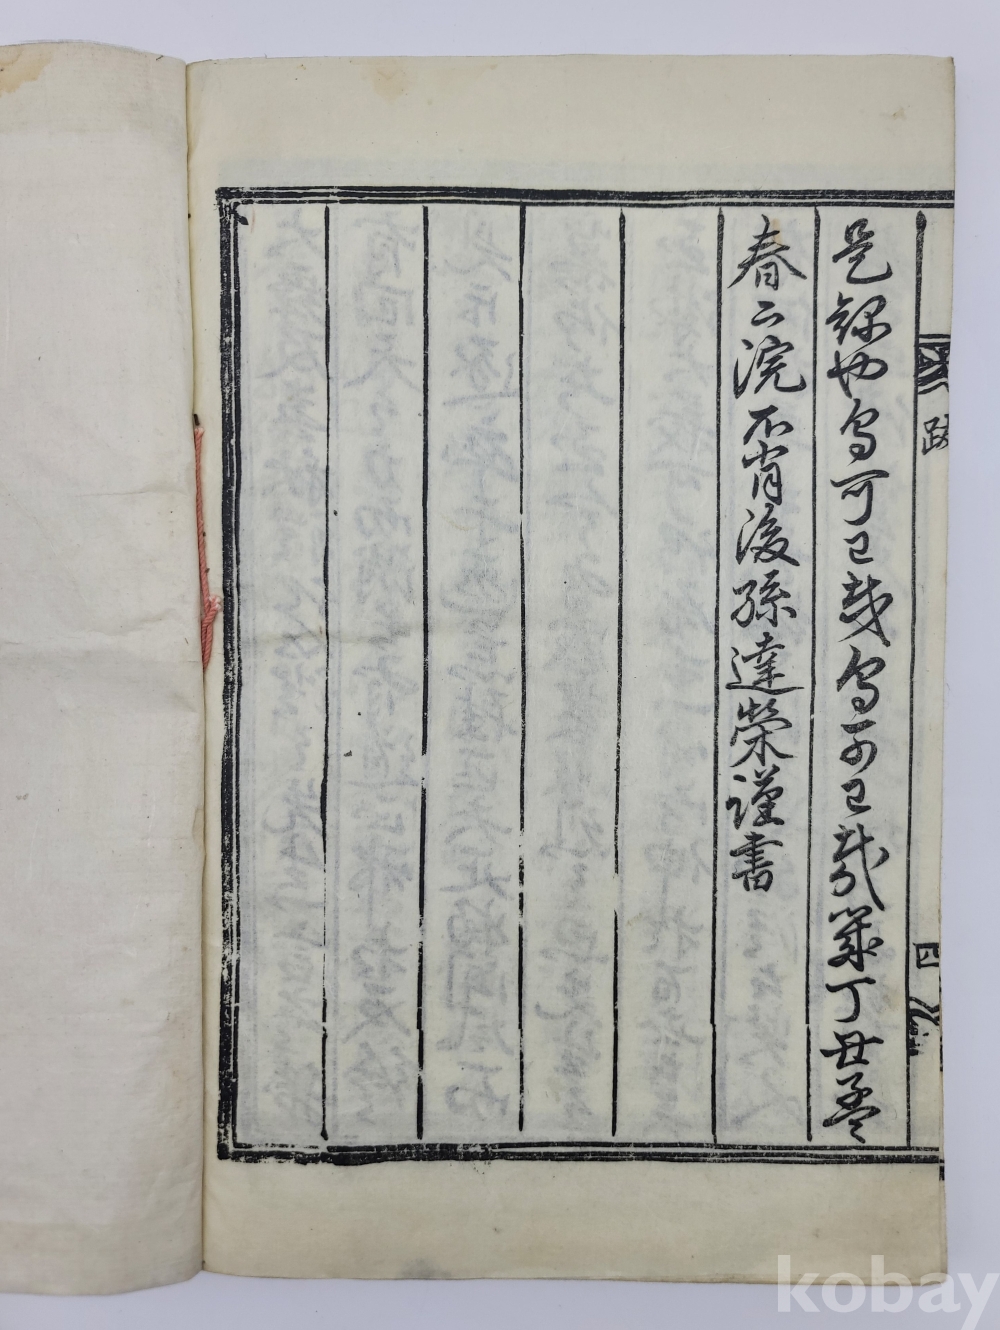 是錄也烏可已哉烏可已哉歲丁丑孟
春下浣不肖後孫達榮謹書
跋
四
kobay